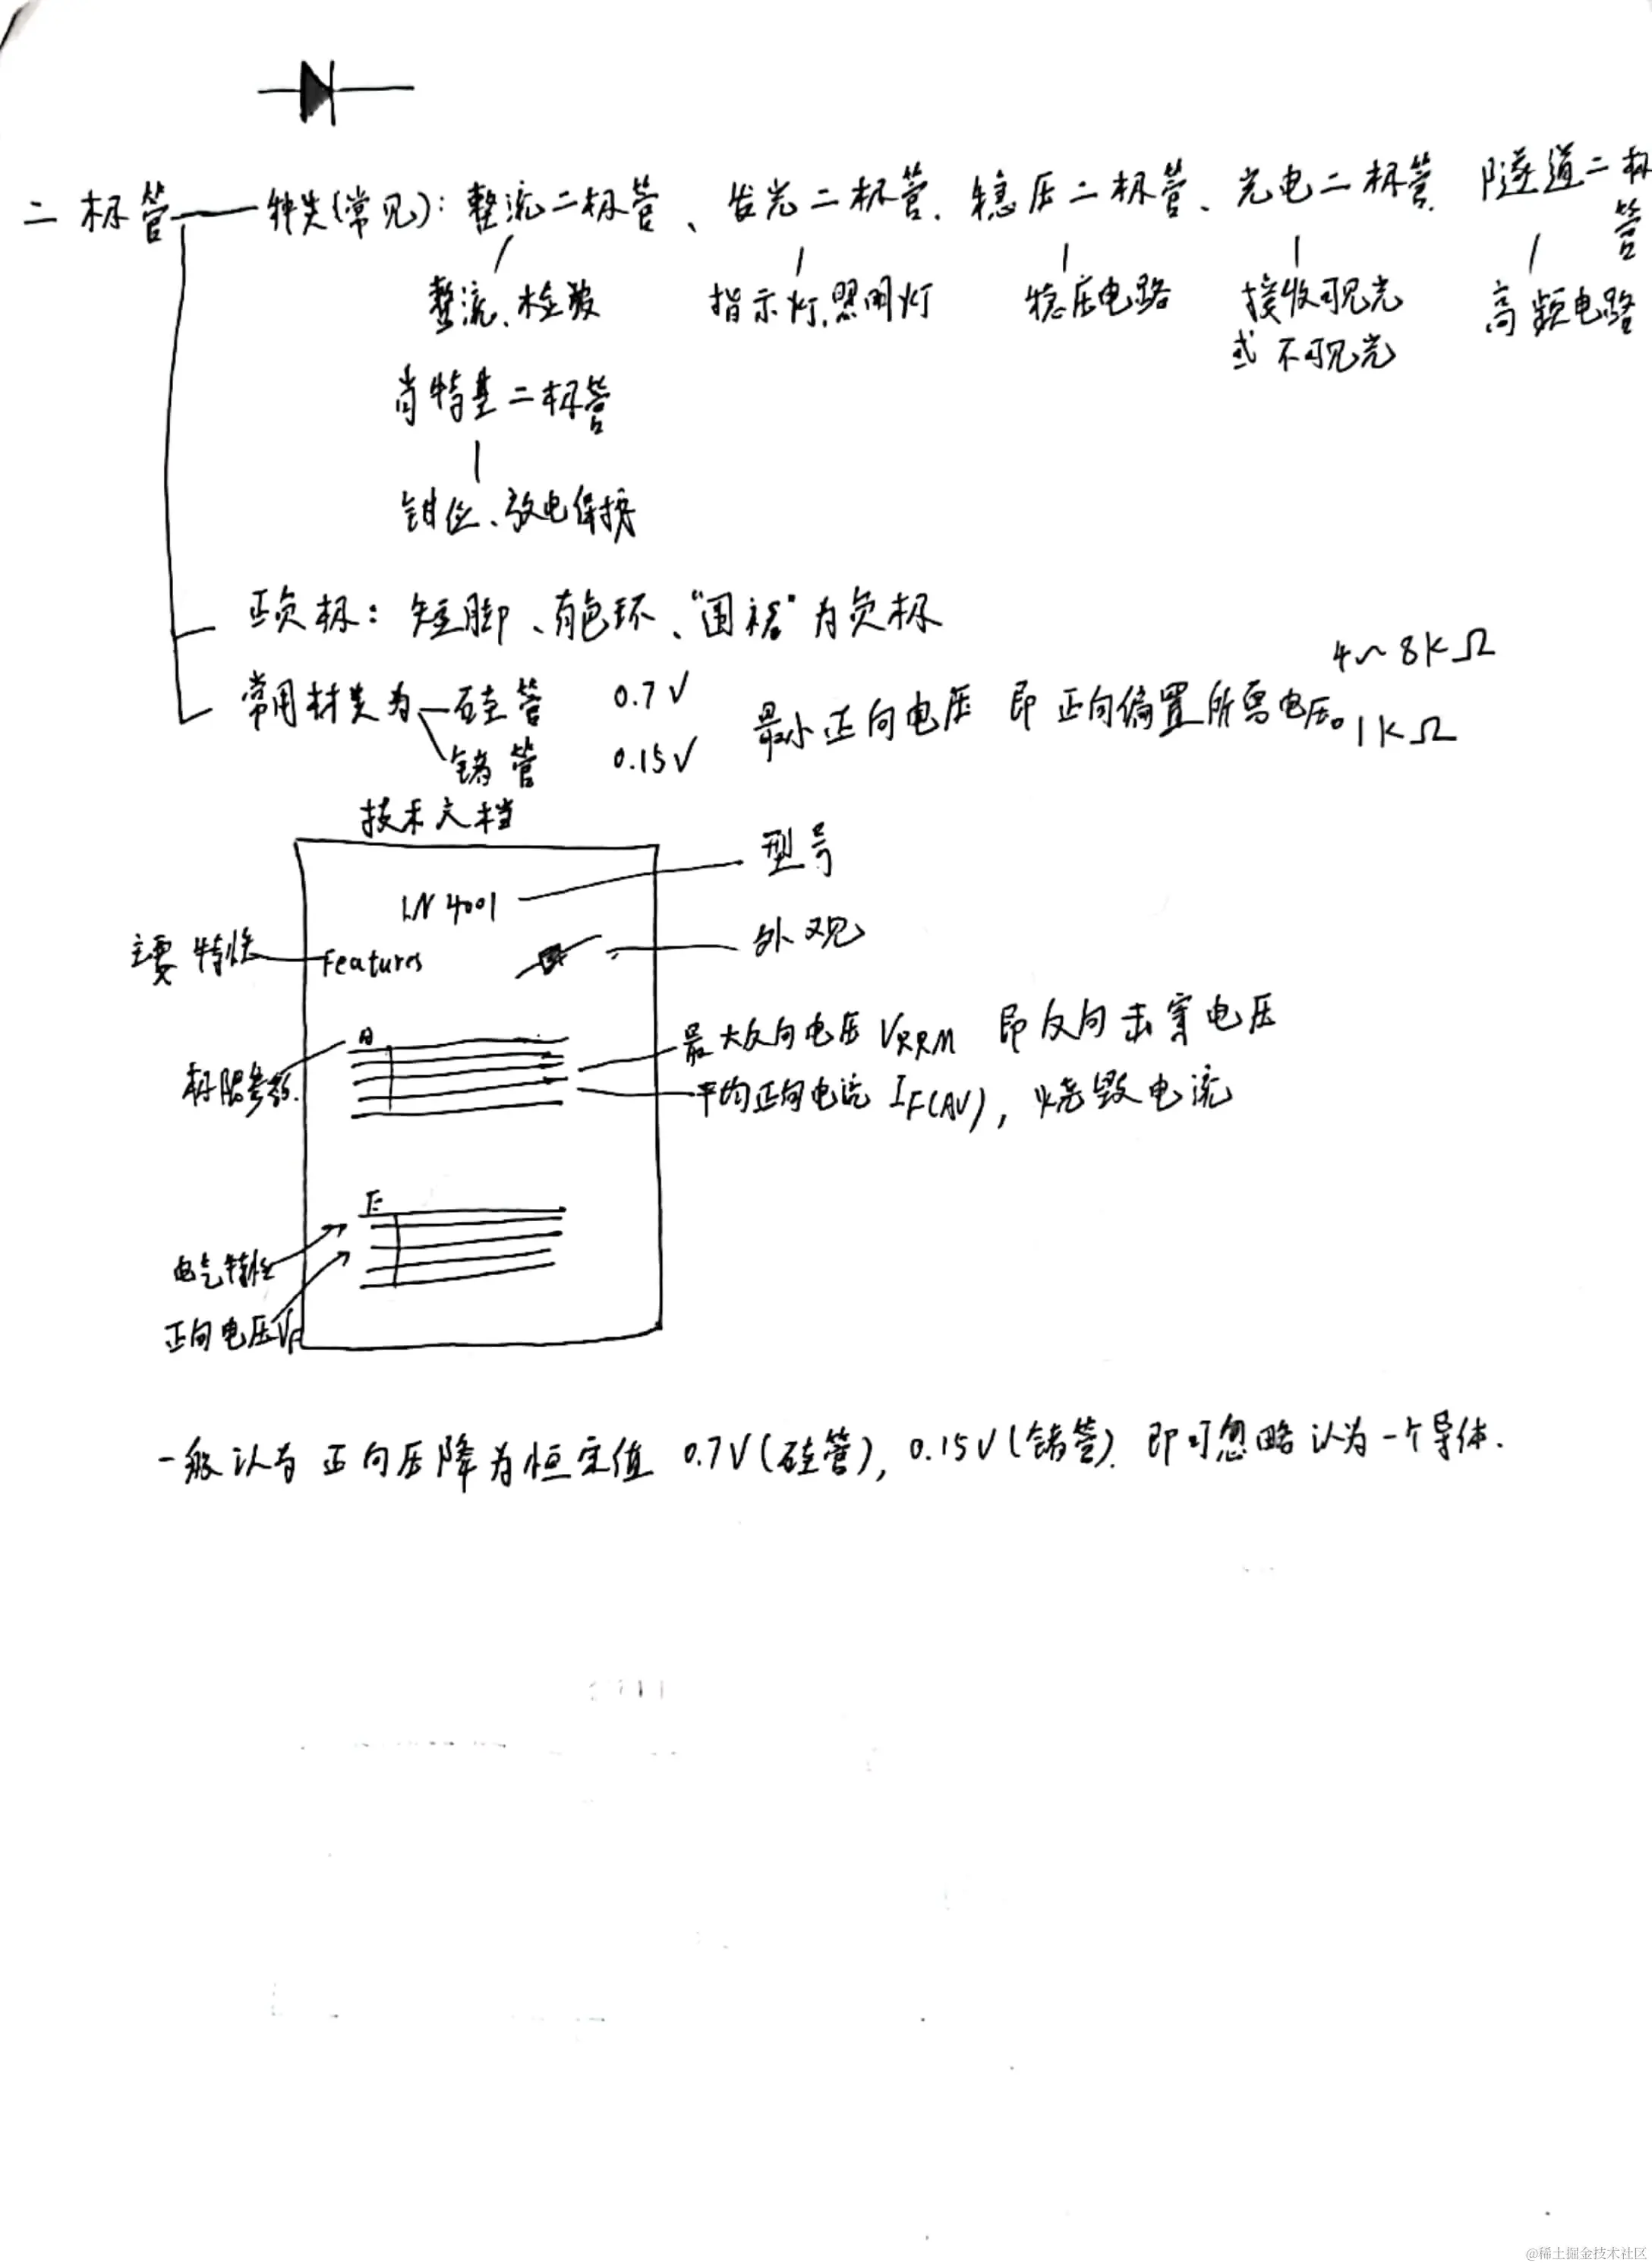 二极管 种类(常见): 整流二极管、发光二极管、稳压二极管、光电二极管、隧道二极管
整流、检波 指示灯,照明灯 稳压电路 接收可见光或不可见光 高频电路
肖特基二极管
钳位、放电保护
正负极: 短脚、有色环、"围裙"为负极
常用材类为 硅管 0.7V 最小正向电压 即正向偏置所需电压。 4~8kΩ
锗管 0.15V 1kΩ
技术文档
LN4001 型号
主要特性 Features 外观
极限参数 A 最大反向电压 VRRM 即反向击穿电压
平均正向电流 IF(AV), 烧毁电流
E
电气特性
正向电压VF
一般认为正向压降为恒定值 0.7V(硅管), 0.15V(锗管). 即可忽略认为一个导体.
@稀土掘金技术社区